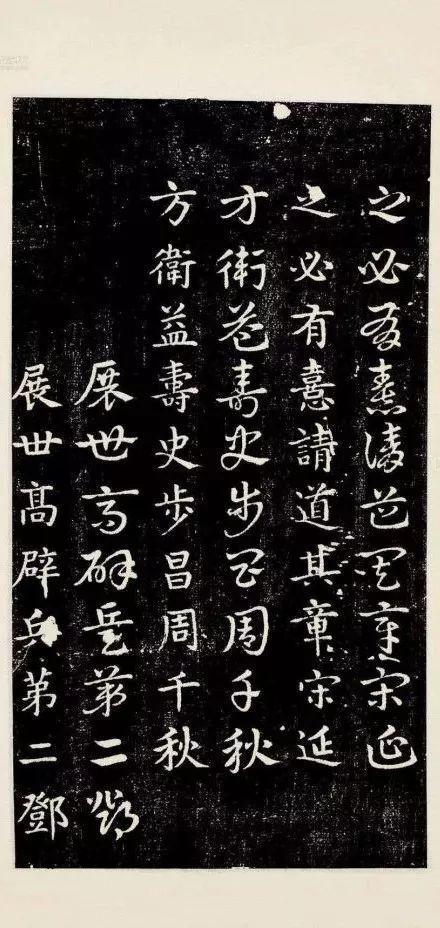 之必有憙請道其章宋延
之必有憙請道其章宋延
方衛益壽史步昌周千秋
方衛益壽史步昌周千秋
展世高辟兵第二鄧
展世高辟兵第二鄧